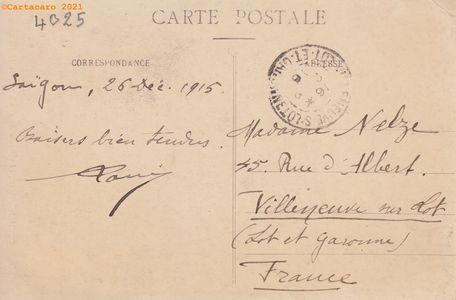 © Cartacaro 2021
4025
CARTE POSTALE
CORRESPONDANCE
ADRESSE
Saïgon, 26 Déc. 1915.
Baisers bien tendres.
Madame Nelze
45. Rue d'Albert.
Villeneuve sur Lot
(Lot et Garonne)
France